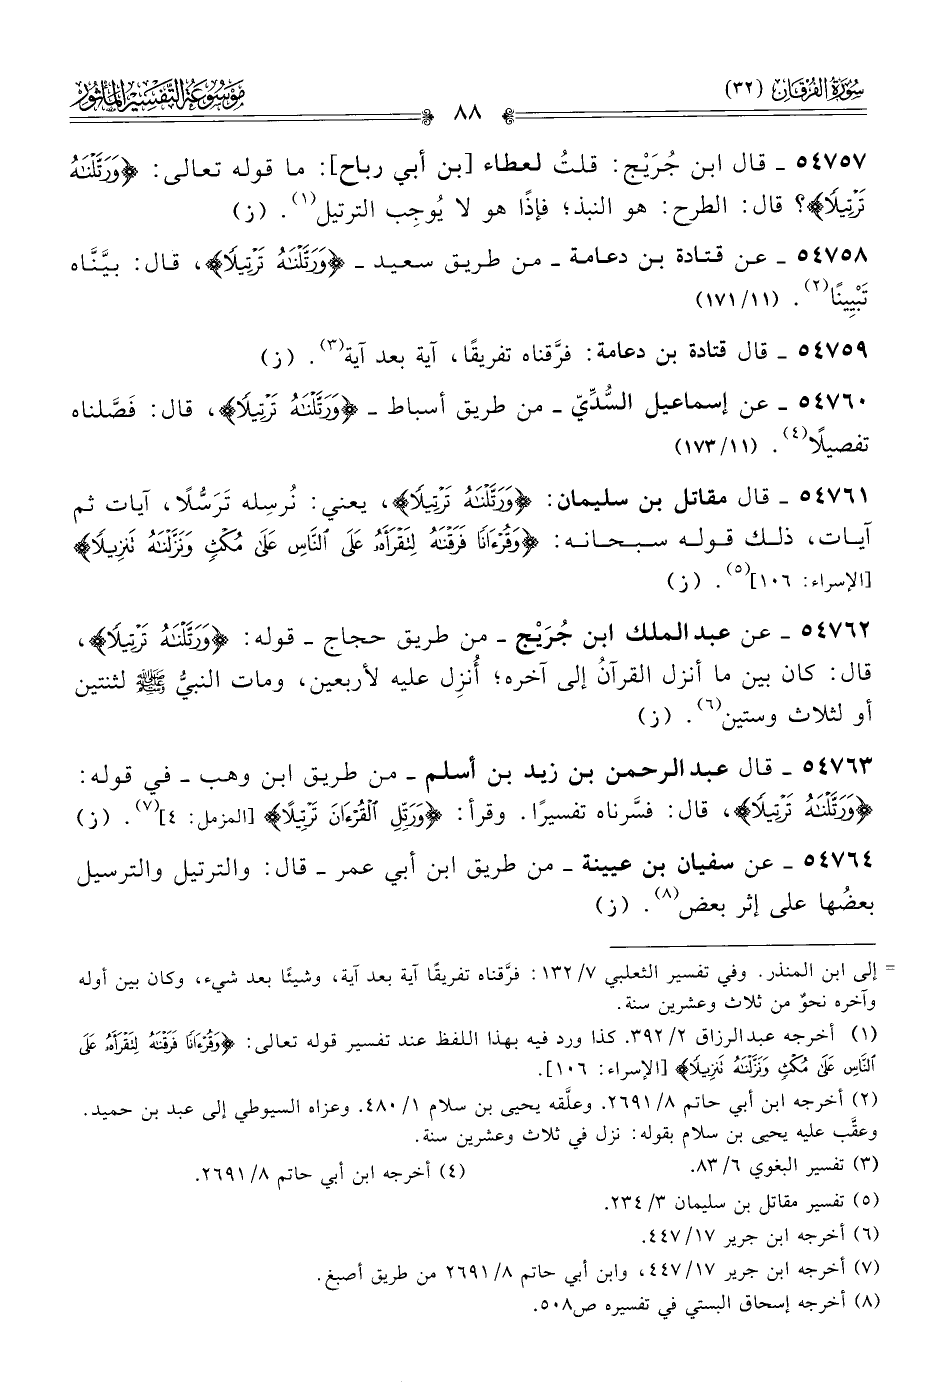 سُورَةُ الفُرْقَان (٣٢)
٨٨
مَوْسُوعَةُ التَّفْسِيرِ المَأْثُور
٥٤٧٥٧ ـ قال ابن جُرَيْج: قلتُ لعطاء [بن أبي رباح]: ما قوله تعالى: ﴿وَرَتَّلْنَٰهُ
تَرْتِيلًا﴾؟ قال: الطرح: هو النبذ؛ فإذًا هو لا يُوجِب الترتيل(١). (ز)
٥٤٧٥٨ ـ عن قتادة بن دعامة ـ من طريق سعيد ـ ﴿وَرَتَّلْنَٰهُ تَرْتِيلًا﴾، قال: بيَّنَّاه
تَبْيِينًا(٢). (١١/ ١٧١)
٥٤٧٥٩ ـ قال قتادة بن دعامة: فرَّقناه تفريقًا، آية بعد آية(٣). (ز)
٥٤٧٦٠ ـ عن إسماعيل السُّدِّيّ ـ من طريق أسباط ـ ﴿وَرَتَّلْنَٰهُ تَرْتِيلًا﴾، قال: فَصَّلناه
تفصيلًا(٤). (١١/ ١٧٣)
٥٤٧٦١ ـ قال مقاتل بن سليمان: ﴿وَرَتَّلْنَٰهُ تَرْتِيلًا﴾، يعني: نُرسِله تَرَسُّلًا، آيات ثم
آيات، ذلك قوله سبحانه: ﴿وَقُرْءَانًا فَرَقْنَٰهُ لِتَقْرَأَهُۥ عَلَى ٱلنَّاسِ عَلَىٰ مُكْثٍ وَنَزَّلْنَٰهُ تَنزِيلًا﴾
[الإسراء: ١٠٦](٥). (ز)
٥٤٧٦٢ ـ عن عبد الملك ابن جُرَيْج ـ من طريق حجاج ـ قوله: ﴿وَرَتَّلْنَٰهُ تَرْتِيلًا﴾،
قال: كان بين ما أنزل القرآنُ إلى آخره؛ أُنزِل عليه لأربعين، ومات النبيُّ ﷺ لثنتين
أو لثلاث وستين(٦). (ز)
٥٤٧٦٣ ـ قال عبد الرحمن بن زيد بن أسلم ـ من طريق ابن وهب ـ في قوله:
﴿وَرَتَّلْنَٰهُ تَرْتِيلًا﴾، قال: فسَّرناه تفسيرًا. وقرأ: ﴿وَرَتِّلِ ٱلْقُرْءَانَ تَرْتِيلًا﴾ [المزمل: ٤](٧). (ز)
٥٤٧٦٤ ـ عن سفيان بن عيينة ـ من طريق ابن أبي عمر ـ قال: والترتيل والترسيل
بعضُها على إثر بعض(٨). (ز)
= إلى ابن المنذر. وفي تفسير الثعلبي ٧/ ١٣٢: فرَّقناه تفريقًا آية بعد آية، وشيئًا بعد شيء، وكان بين أوله
وآخره نحوٌ من ثلاث وعشرين سنة.
(١) أخرجه عبد الرزاق ٢/ ٣٩٢. كذا ورد فيه بهذا اللفظ عند تفسير قوله تعالى: ﴿وَقُرْءَانًا فَرَقْنَٰهُ لِتَقْرَأَهُۥ عَلَى
ٱلنَّاسِ عَلَىٰ مُكْثٍ وَنَزَّلْنَٰهُ تَنزِيلًا﴾ [الإسراء: ١٠٦].
(٢) أخرجه ابن أبي حاتم ٨/ ٢٦٩١. وعلَّقه يحيى بن سلام ١/ ٤٨٠. وعزاه السيوطي إلى عبد بن حميد.
وعقَّب عليه يحيى بن سلام بقوله: نزل في ثلاث وعشرين سنة.
(٣) تفسير البغوي ٦/ ٨٣. (٤) أخرجه ابن أبي حاتم ٨/ ٢٦٩١.
(٥) تفسير مقاتل بن سليمان ٣/ ٢٣٤.
(٦) أخرجه ابن جرير ١٧/ ٤٤٧.
(٧) أخرجه ابن جرير ١٧/ ٤٤٧، وابن أبي حاتم ٨/ ٢٦٩١ من طريق أصبغ.
(٨) أخرجه إسحاق البستي في تفسيره ص٥٠٨.